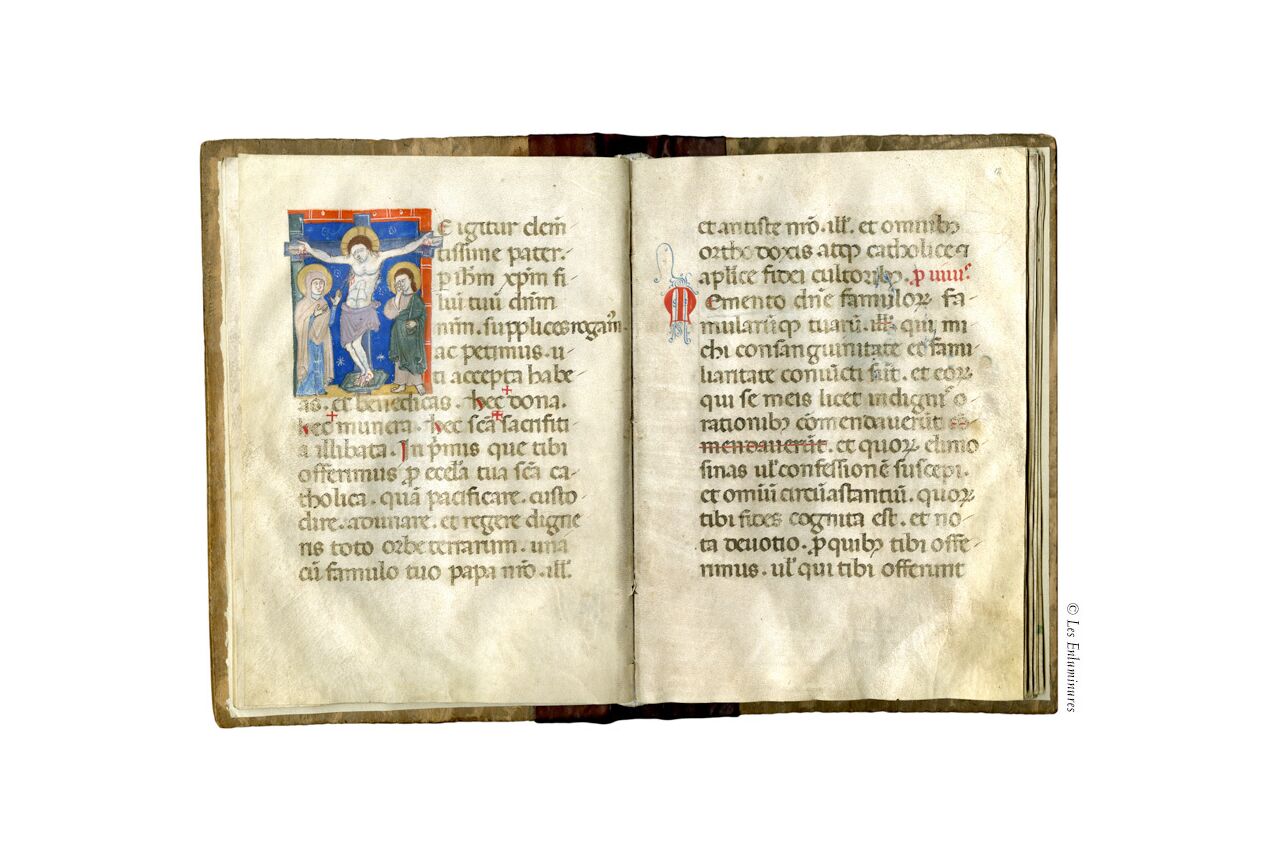 E igitur clem̄
tissime pater.
p ih̄m xp̄m fi
liū tuū dn̄m
nr̄m. supplices rogam̄.
ac petimus. u
ti accepta habe
as. et benedicas. hec dona.
hec munera. hec sc̄a sacrifiti
a illibata. In p̄mis que tibi
offerimus p̄ eccl̄a tua sc̄a ca
tholica. quā pacificare. custo
dire. adunare. et regere digne
ris toto orbe terrarum. una
cū famulo tuo papa nr̄o. ill̄.
et antiste nr̄o. ill̄. et omnibꝫ
orthodoxis atqꝫ catholice ⁊
apl̄ice fidei cultoribꝫ. p̄ uiuis
Memento dn̄e famulorꝝ fa
mularūqꝫ tuarū. ill̄. qui mi
chi consanguinitate et fami
liaritate coniūcti sūt. et eorꝝ
qui se meis licet indignis o
rationibꝫ cōmendauerūt
mendauerūt. et quorꝝ elimo
sinas ul̄ confessionē suscepi.
et omiū circūastantiū. quorꝝ
tibi fides cognita est. et no
ta deuotio. p̄ quibꝫ tibi offe
rimus. ul̄ qui tibi offerunt
© Les Enluminures